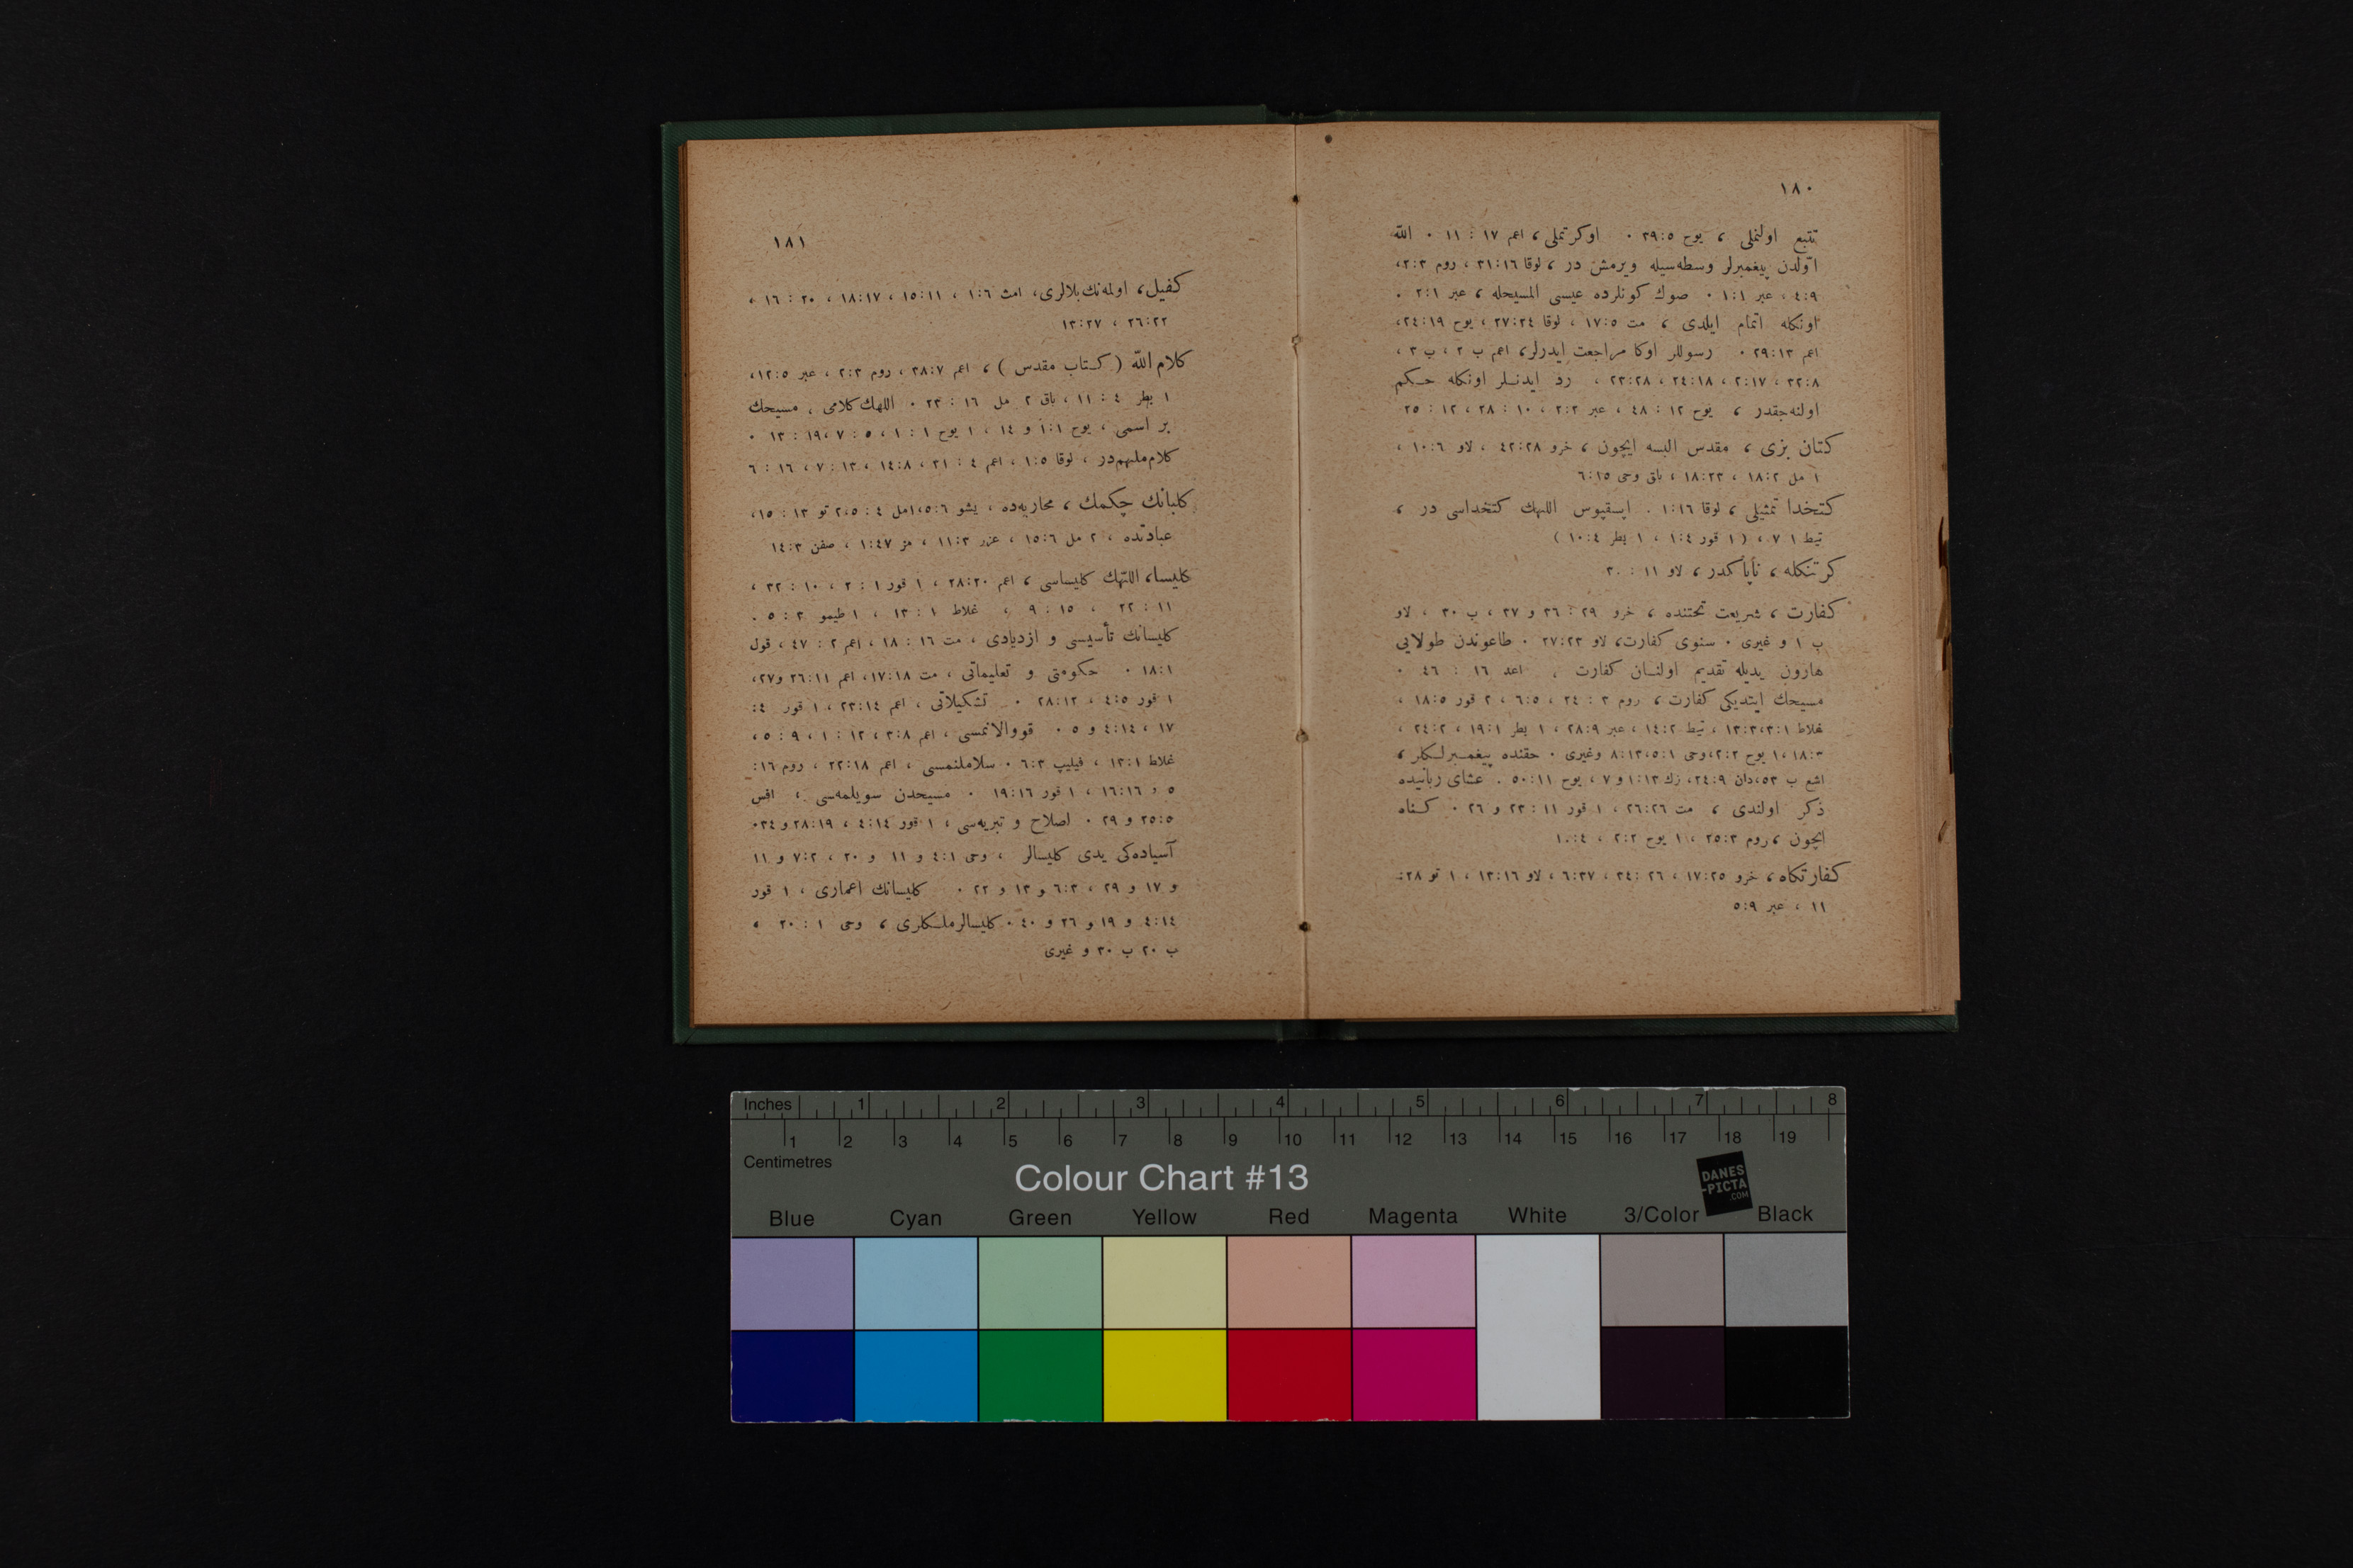 ١٨٠
تتبع اولنملی ، یوح ٣٩:٥ ٠ اوكرتملی ، اعم ١٧ : ١١ ٠ الله
اوّلدن پیغمبرلر وسطه‌سیله ویرمش در ، لوقا ٣١:١٦ ، روم ٢:٣،
٤:٩ ، عبر ١:١ ٠ صوك كونلرده عیسی المسیحله ، عبر ٢:١ ٠
اونكله اتمام ایلدی ، مت ١٧:٥ ، لوقا ٢٧:٢٤ ، یوح ٢٤:١٩،
اعم ٢٩:١٣ ٠ رسوللر اوكا مراجعت ایدرلر، اعم ب ٢ ، ب ٣ ،
٣٢:٨ ، ٢:١٧ ، ٢٤:١٨ ، ٢٣:٢٨ ، رد ایدنلر اونكله حكم
اولنه‌جقدر ، یوح ١٢ : ٤٨ ، عبر ٢:٢ ، ١٠ : ٢٨ ، ١٢ : ٢٥
كتان بزی ، مقدس البسه ایچون ، خرو ٤٢:٢٨ ، لاو ١٠:٦ ،
١ مل ١٨:٢ ، ١٨:٢٢ ، باق وحی ٦:١٥
كتخدا تمثیلی ، لوقا ١:١٦ ٠ اپسقپوس اللهك كتخداسی در ،
تیط ١ ٧ ، ( ١ قور ١:٤ ، ١ بطر ١٠:٤ )
كرتنكله ، ناپاكدر ، لاو ١١ : ٣٠
كفارت ، شریعت تحتنده ، خرو ٢٩ : ٣٦ و ٣٧ ، ب ٣٠ ، لاو
ب ١ و غیری ٠ سنوی كفارت، لاو ٢٧:٢٣ ٠ طاعوندن طولایی
هارون یدیله تقدیم اولنان كفارت ، اعد ١٦ : ٤٦ ٠
مسیحك ایتدیكی كفارت ، روم ٣ : ٢٤ ، ٦:٥ ، ٢ قور ١٨:٥ ،
غلاط ١٣:٣،٣:١ ، تیط ١٤:٢ ، عبر ٢٨:٩ ، ١ بطر ١٩:١ ، ٢٤:٢ ،
١،١٨:٣ یوح ٢:٢،وحی ٨:١٣،٥:١ وغیری ٠ حقنده پیغمبرلكلر ،
اشع ب ٥٣،دان ٢٤:٩، زك ١:١٣ و ٧ ، یوح ٥٠:١١ ٠ عشای ربانیده
ذكر اولندی ، مت ٢٦:٢٦ ، ١ قور ١١ : ٢٣ و ٢٦ ٠ كناه
ایچون ، روم ٢٥:٣ ، ١ یوح ٢:٢ ، ١٠:٤
كفارتكاه ، خرو ١٧:٢٥ ، ٢٦ :٣٤ ، ٦:٣٧ ، لاو ١٣:١٦ ، ١ تو ٢٨:
١١ ، عبر ٥:٩
١٨١
كفیل، اولمه‌نك بلالری، امث ١:٦ ، ١٥:١١ ، ١٨:١٧ ، ٢٠ : ١٦ ،
٢٦:٢٢ ، ١٣:٢٧
كلام الله ( كتاب مقدس ) ، اعم ٣٨:٧ ، روم ٢:٣ ، عبر ١٢:٥،
١ بطر ٤ : ١١ ، باق ٢ مل ١٦ : ٢٣ ٠ اللهك كلامی ، مسیحك
بر اسمی ، یوح ١:١ و ١٤ ، ١ یوح ١ : ١ ، ٥ : ٧ ،١٩ : ١٣ ٠
كلام ملهم در ، لوقا ١:٥ ، اعم ٤ : ٣١ ، ١٤:٨ ، ١٣ : ٧ ، ١٦ : ٦
كلبانك چكمك ، محاربه‌ده ، یشو ٥:٦،١مل ٤ : ٢،٥ تو ١٣ : ١٥،
عبادتده ، ٢ مل ١٥:٦ ، عزر ١١:٣ ، مز ١:٤٧ ، صفن ١٤:٣
كلیسا، اللّهك كلیساسی ، اعم ٢٨:٢٠ ، ١ قور ١ : ٢ ، ١٠ : ٣٢ ،
١١ : ٢٢ ، ١٥ : ٩ ، غلاط ١ : ١٣ ، ١ طیمو ٣ : ٥ ٠
كلیسانك تأسیسی و ازدیادی ، مت ١٦ : ١٨ ، اعم ٢ : ٤٧ ، قول
١٨:١ ٠ حكومتی و تعلیماتی ، مت ١٧:١٨، اعم ٢٦:١١ و٢٧،
١ قور ٤:٥ ، ٢٨:١٢ ٠ تشكیلاتی ، اعم ٢٣:١٤ ، ١ قور ٤:
١٧ ، ٤:١٤ و ٥ ٠ قووالانمسی ، اعم ٣:٨ ، ١٢ : ١ ، ٩ : ٥ ،
غلاط ١٣:١ ، فیلیپ ٦:٣ ٠ سلاملنمسی ، اعم ٢٢:١٨ ، روم ١٦:
٥ و ١٦:١٦ ، ١ قور ١٩:١٦ ٠ مسیحدن سویلمه‌سی ، افس
٢٥:٥ و ٢٩ ٠ اصلاح و تبریه‌سی ، ١ قور ٤:١٤ ، ٢٨:١٩ و ٣٤٠
آسیاده‌كی یدی كلیسالر ، وحی ٤:١ و ١١ و ٢٠ ، ٧:٢ و ١١
و ١٧ و ٢٩ ، ٦:٣ و ١٣ و ٢٢ ٠ كلیسانك اعماری ، ١ قور
٤:١٤ و ١٩ و ٢٦ و ٤٠ ٠ كلیسالر ملكلری ، وحی ١ : ٢٠ ،
ب ٢٠ ب ٣٠ و غیری
Inches 1 2 3 4 5 6 7 8
1 2 3 4 5 6 7 8 9 10 11 12 13 14 15 16 17 18 19
Centimetres
Colour Chart #13
DANES
-PICTA
.COM
Blue Cyan Green Yellow Red Magenta White 3/Color Black